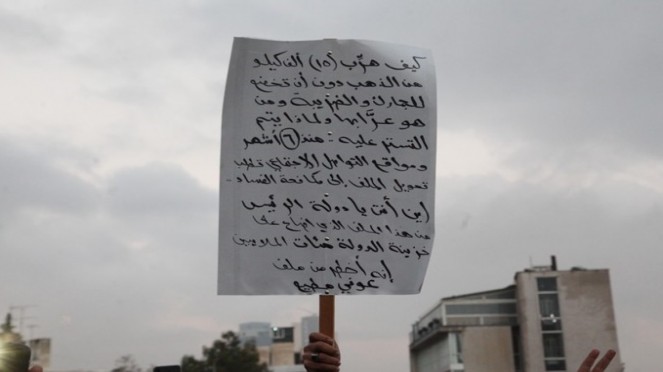 كيف هرّب (١٥) ألف كيلو
من الذهب دون أن تخضع
للجمارك والضريبة ومن
هو عرّابها ولماذا يتم
التستر عليه : منذ (٦) أشهر
ومواقع التواصل الاجتماعي تطلب
تحويل الملف إلى مكافحة الفساد -
اين أنت يا دولة الرئيس
من هذا الملف الذي اضاع على
خزينة الدولة مئات الملايين
إنه أخطر من ملف
عوني مطيع